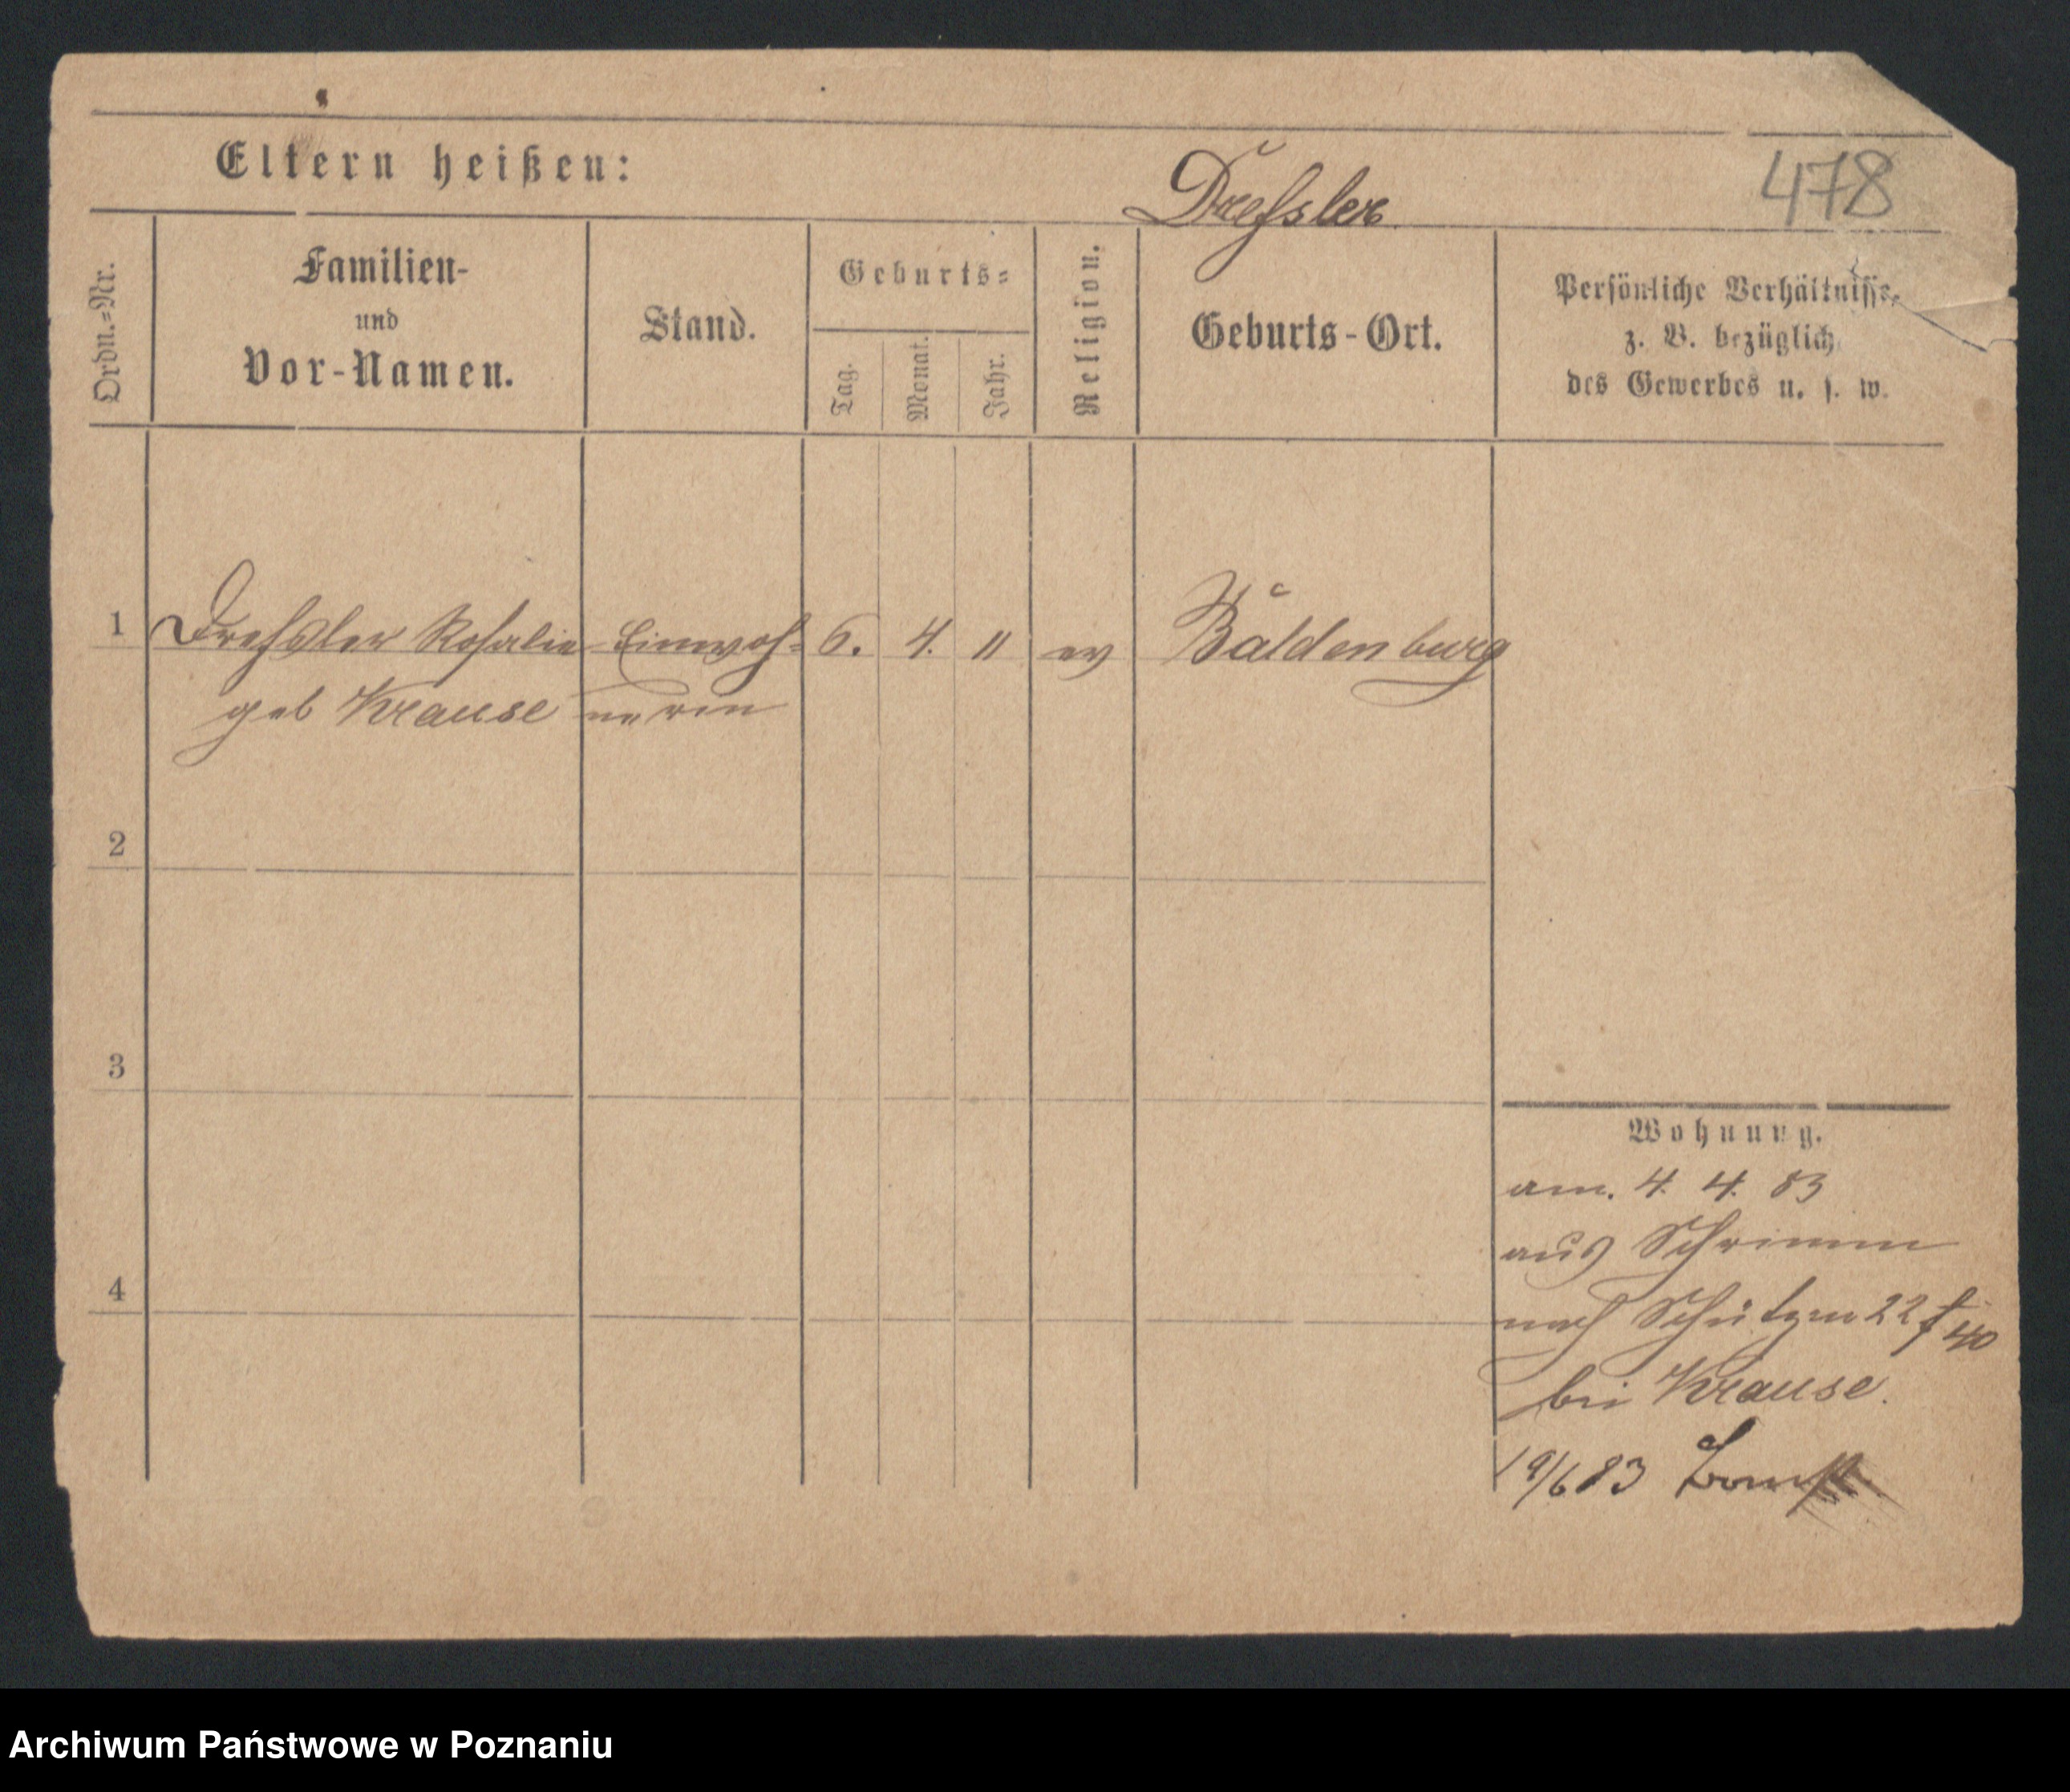 Eltern heißen:
Dressler
478
Ordn.=Nr.
Familien-
und
Vor-Namen.
Stand.
Geburts=
Tag.
Monat.
Jahr.
Religion.
Geburts-Ort.
Persönliche Verhältnisse,
z. B. bezüglich
des Gewerbes u. s. w.
1 Dressler Rosalie Einwoh= 6. 4. 11 ev Baldenburg
geb Krause nerin
2
3
4
Wohnung.
am. 4. 4. 83
aus Schrimm
nach Schützen 22
40
bei Krause.
19/6 83
Archiwum Państwowe w Poznaniu